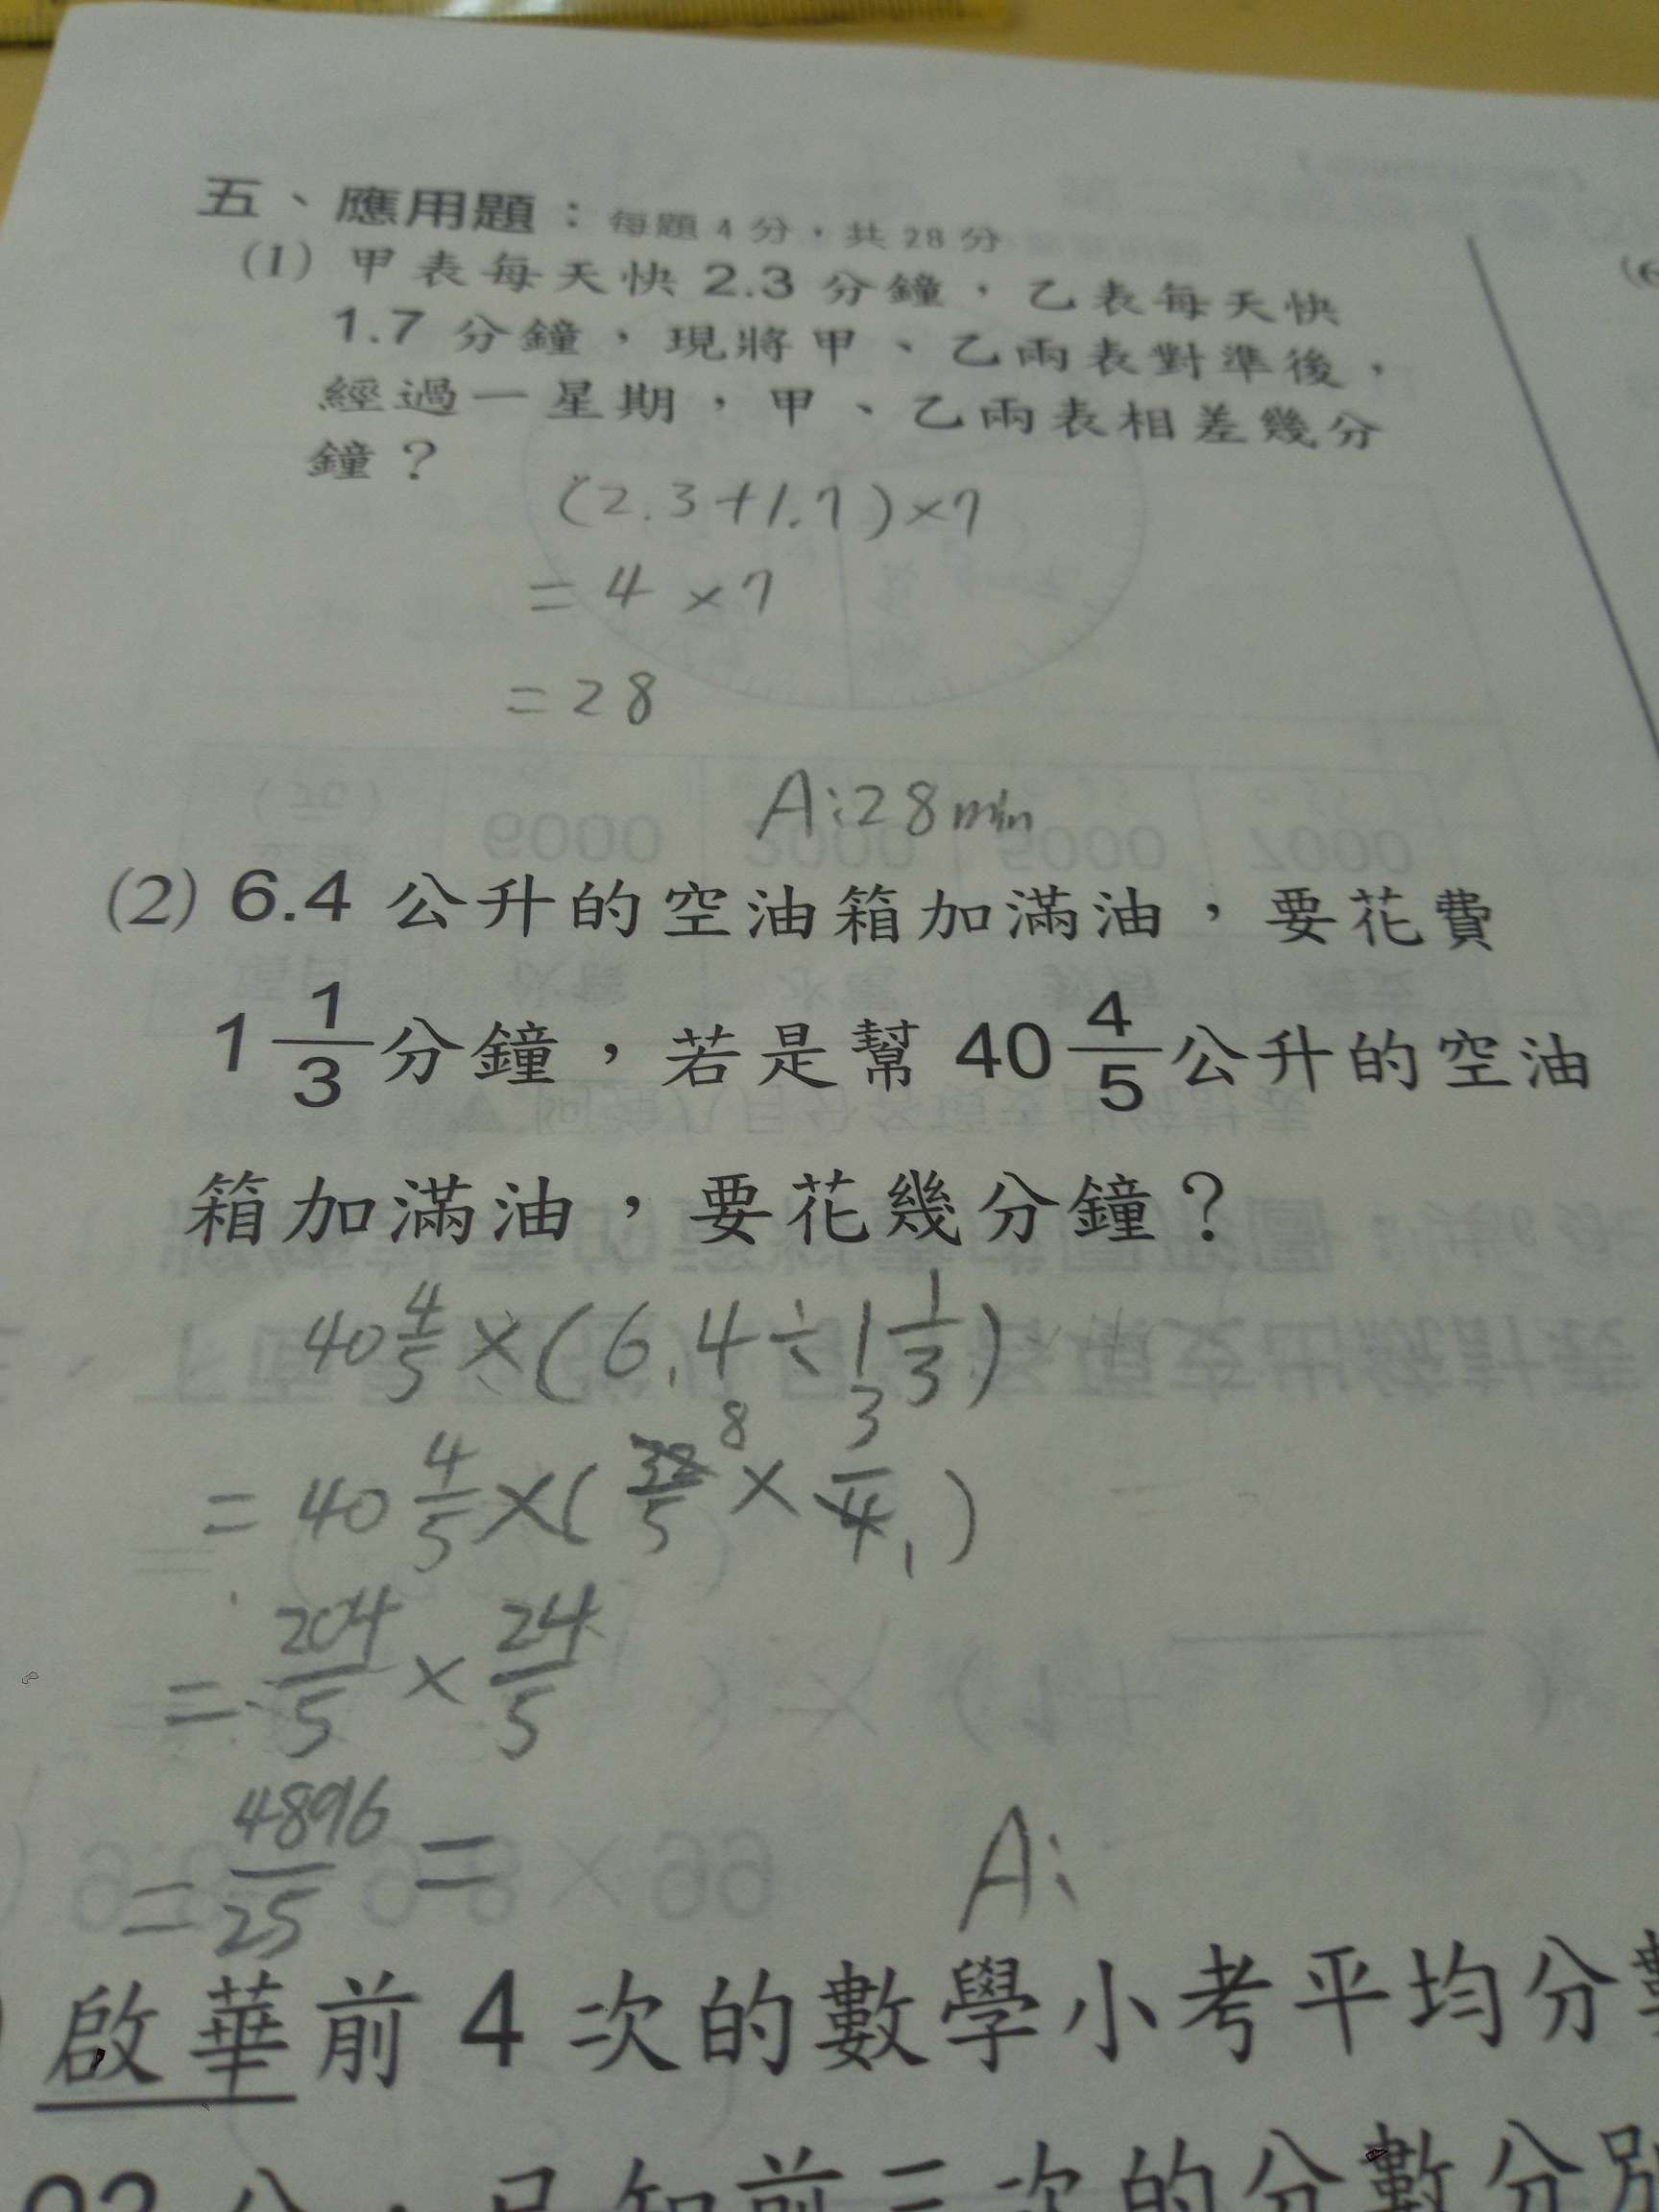 五、應用題：每題4分，共28分
(1) 甲表每天快 2.3 分鐘，乙表每天快
1.7 分鐘，現將甲、乙兩表對準後，
經過一星期，甲、乙兩表相差幾分
鐘？
(2.3+1.7)×7
=4×7
=28
A:28min
(2) 6.4 公升的空油箱加滿油，要花費
1 1/3 分鐘，若是幫 40 4/5 公升的空油
箱加滿油，要花幾分鐘？
40 4/5 ×(6.4÷1 1/3)
=40 4/5 ×(32/5 8 × 3/4 1)
=204/5 × 24/5
=4896/25 =
A:
啟華前 4 次的數學小考平均分